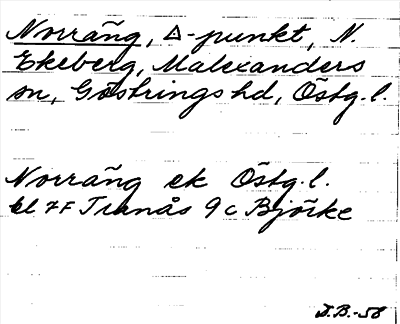 Norräng, △-punkt, N.
Ekeberg, Malexanders
sn, Göstrings hd, Östg. l.
Norräng ek Östg. l.
bl 7F Tranås 9c Björke
D.B.-58